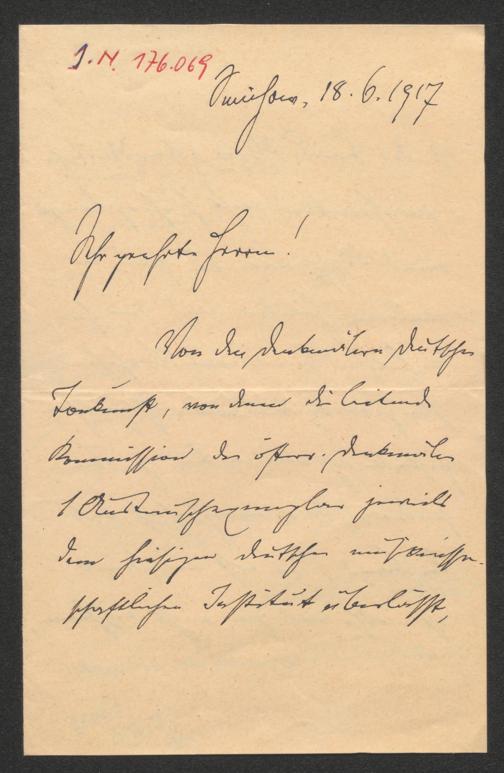 I.N. 176.069
Smichow, 18.6.1917
Sehr geehrte Herren!
Von den Denkmälern deutscher
Tonkunst, von denen die leitende
Kommission der österr. Denkmäler
1 Austauschexemplar jeweils
dem hiesigen deutschen musikwissen-
schaftlichen Institut überlässt,